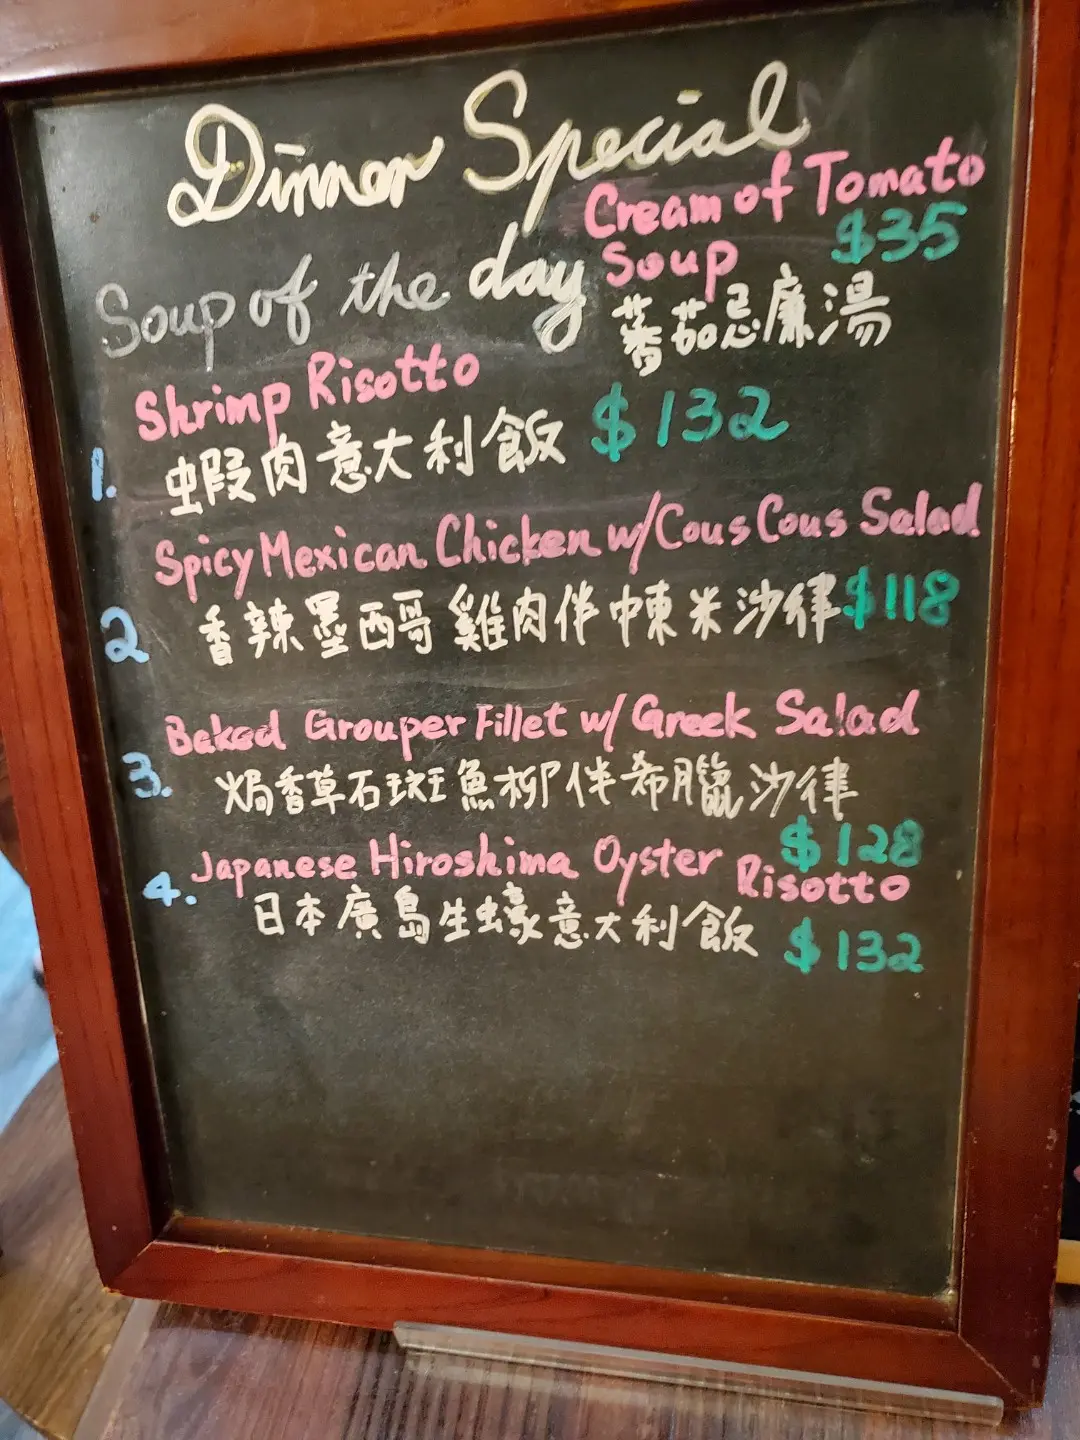 Dinner Special
Soup of the day
Cream of Tomato
Soup $35
蕃茄忌廉湯
Shrimp Risotto
1. 蝦肉意大利飯 $132
Spicy Mexican Chicken w/Cous Cous Salad
2 香辣墨西哥雞肉伴中東米沙律 $118
Baked Grouper Fillet w/ Greek Salad
3. 焗香草石斑魚柳伴希臘沙律
$128
4. Japanese Hiroshima Oyster Risotto
日本廣島生蠔意大利飯 $132